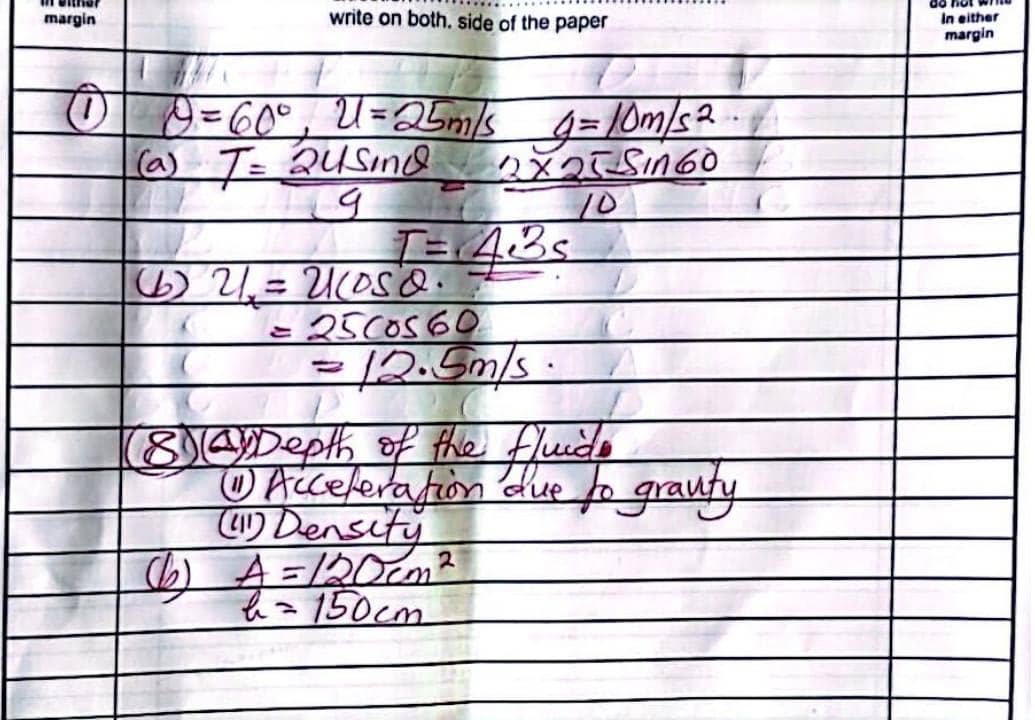 in either
margin
write on both. side of the paper
do not write
in either
margin
① θ=60°, U=25m/s g=10m/s²
(a) T= 2usinθ = 2×25 Sin60
g 10
T= 4.3s
(b) Uₓ= Ucosθ.
= 25cos60
= 12.5m/s.
(8)(a)(i) Depth of the fluid.
(ii) Acceleration due to gravity
(iii) Density
(b) A =120cm²
h = 150cm